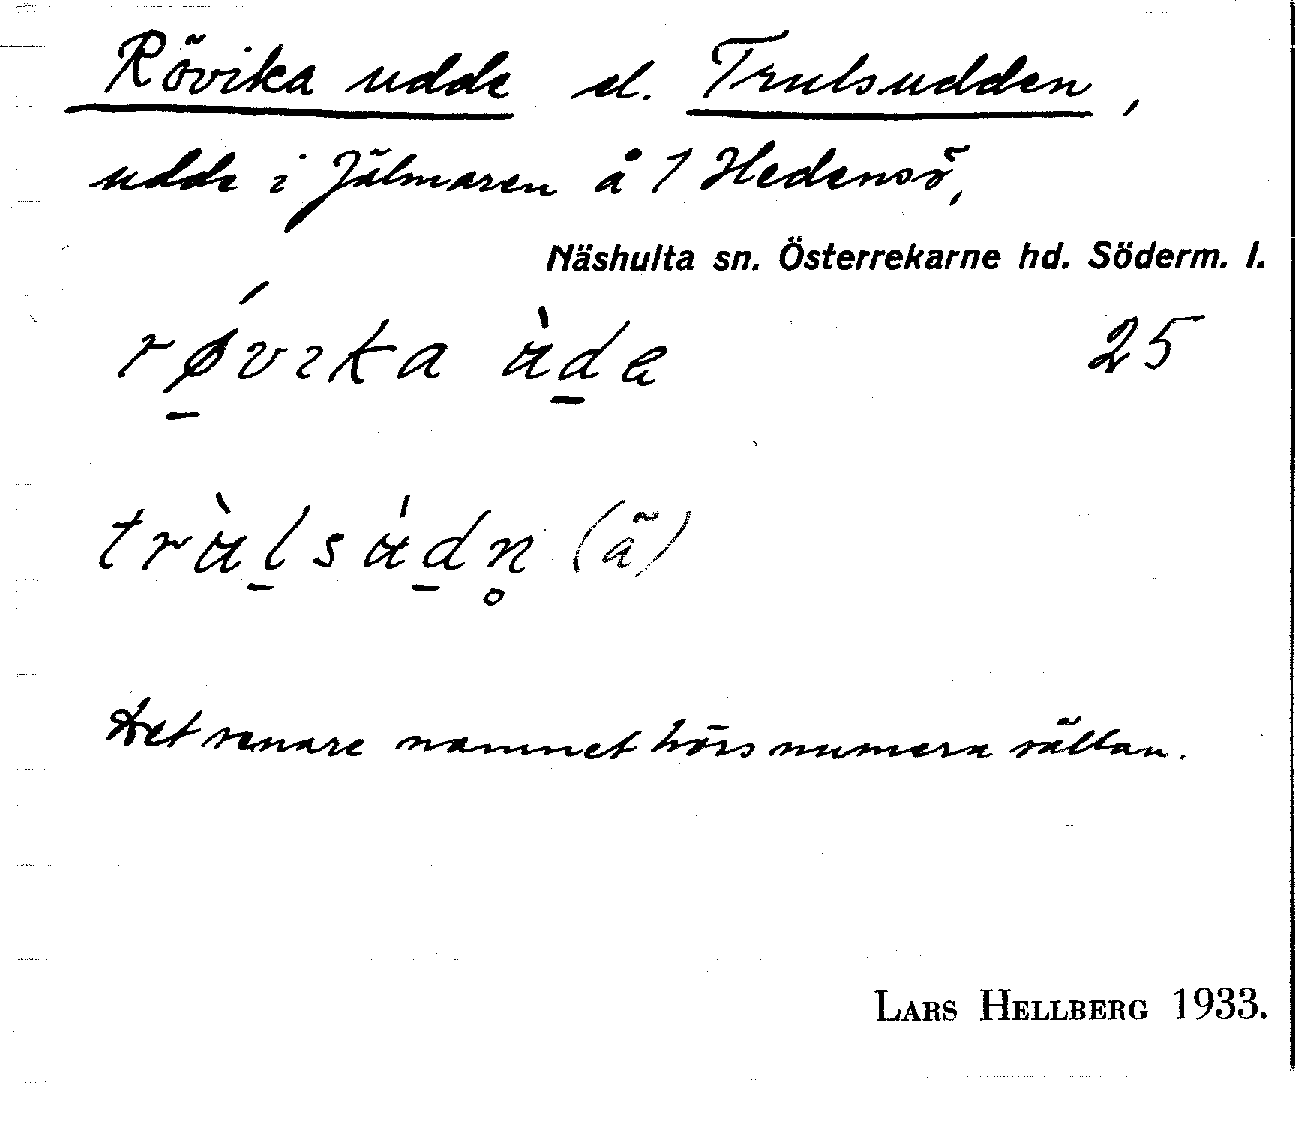 Rövika udde el. Trulsudden,
udde i Jälmaren å 1 Hedensö,
Näshulta sn. Österrekarne hd. Söderm. l.
rǿ̱vıka ùḏe 25
trùḻsúḏn̥ (ä)
Det senare namnet hörs numera sällan.
LARS HELLBERG 1933.